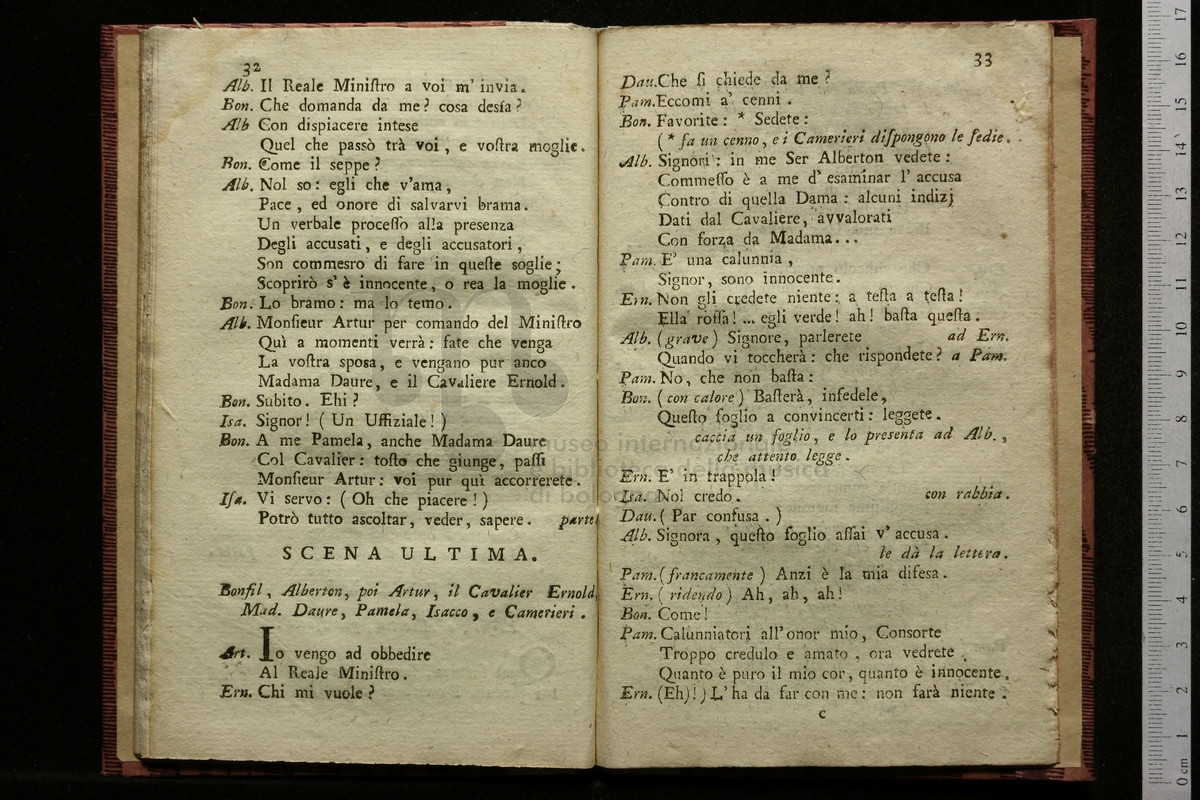 32
Alb. Il Reale Miniſtro a voi m' invia.
Bon. Che domanda da me? cosa desía?
Alb Con dispiacere intese
Quel che passò trà voi, e voſtra moglie.
Bon. Come il seppe?
Alb. Nol so: egli che v'ama,
Pace, ed onore di salvarvi brama.
Un verbale proceſſo alla presenza
Degli accusati, e degli accusatori,
Son commesro di fare in queſte soglie;
Scoprirò s' è innocente, o rea la moglie.
Bon. Lo bramo: ma lo temo.
Alb. Monſieur Artur per comando del Miniſtro
Quì a momenti verrà: fate che venga
La voſtra sposa, e vengano pur anco
Madama Daure, e il Cavaliere Ernold.
Bon. Subito. Ehi?
Isa. Signor! ( Un Uffiziale! )
Bon. A me Pamela, anche Madama Daure
Col Cavalier: toſto che giunge, paſſi
Monſieur Artur: voi pur quì accorrerete.
Iſa. Vi servo: ( Oh che piacere! )
Potrò tutto ascoltar, veder, sapere. parte
SCENA ULTIMA.
Bonfil, Alberton, poi Artur, il Cavalier Ernold
Mad. Daure, Pamela, Isacco, e Camerieri.
Art. Io vengo ad obbedire
Al Reale Miniſtro.
Ern. Chi mi vuole?
33
Dau. Che ſi chiede da me?
Pam. Eccomi a' cenni.
Bon. Favorite: * Sedete:
( * fa un cenno, e i Camerieri diſpongono le ſedie.
Alb. Signori: in me Ser Alberton vedete:
Commeſſo è a me d' esaminar l' accusa
Contro di quella Dama: alcuni indizj
Dati dal Cavaliere, avvalorati
Con forza da Madama...
Pam. E' una calunnia,
Signor, sono innocente.
Ern. Non gli credete niente: a teſta a teſta!
Ella roſſa! ... egli verde! ah! baſta queſta.
Alb. (grave) Signore, parlerete ad Ern.
Quando vi toccherà: che rispondete? a Pam.
Pam. No, che non baſta:
Bon. ( con calore ) Baſterà, infedele,
Queſto foglio a convincerti: leggete.
caccia un foglio, e lo presenta ad Alb.,
che attento legge.
Ern. E' in trappola!
Isa. Nol credo. con rabbia.
Dau. ( Par confusa. )
Alb. Signora, queſto foglio aſſai v' accusa.
le dà la lettera.
Pam. (francamente ) Anzi è la mia difesa.
Ern. ( ridendo ) Ah, ah, ah!
Bon. Come!
Pam. Calunniatori all'onor mio, Consorte
Troppo credulo e amato, ora vedrete
Quanto è puro il mio cor, quanto è innocente.
Ern. (Eh)!) L' ha da far con me: non farà niente.
C
museo internazionale
e biblioteca della musica
di bologna
0 cm 1 2 3 4 5 6 7 8 9 10 11 12 13 14 15 16 17